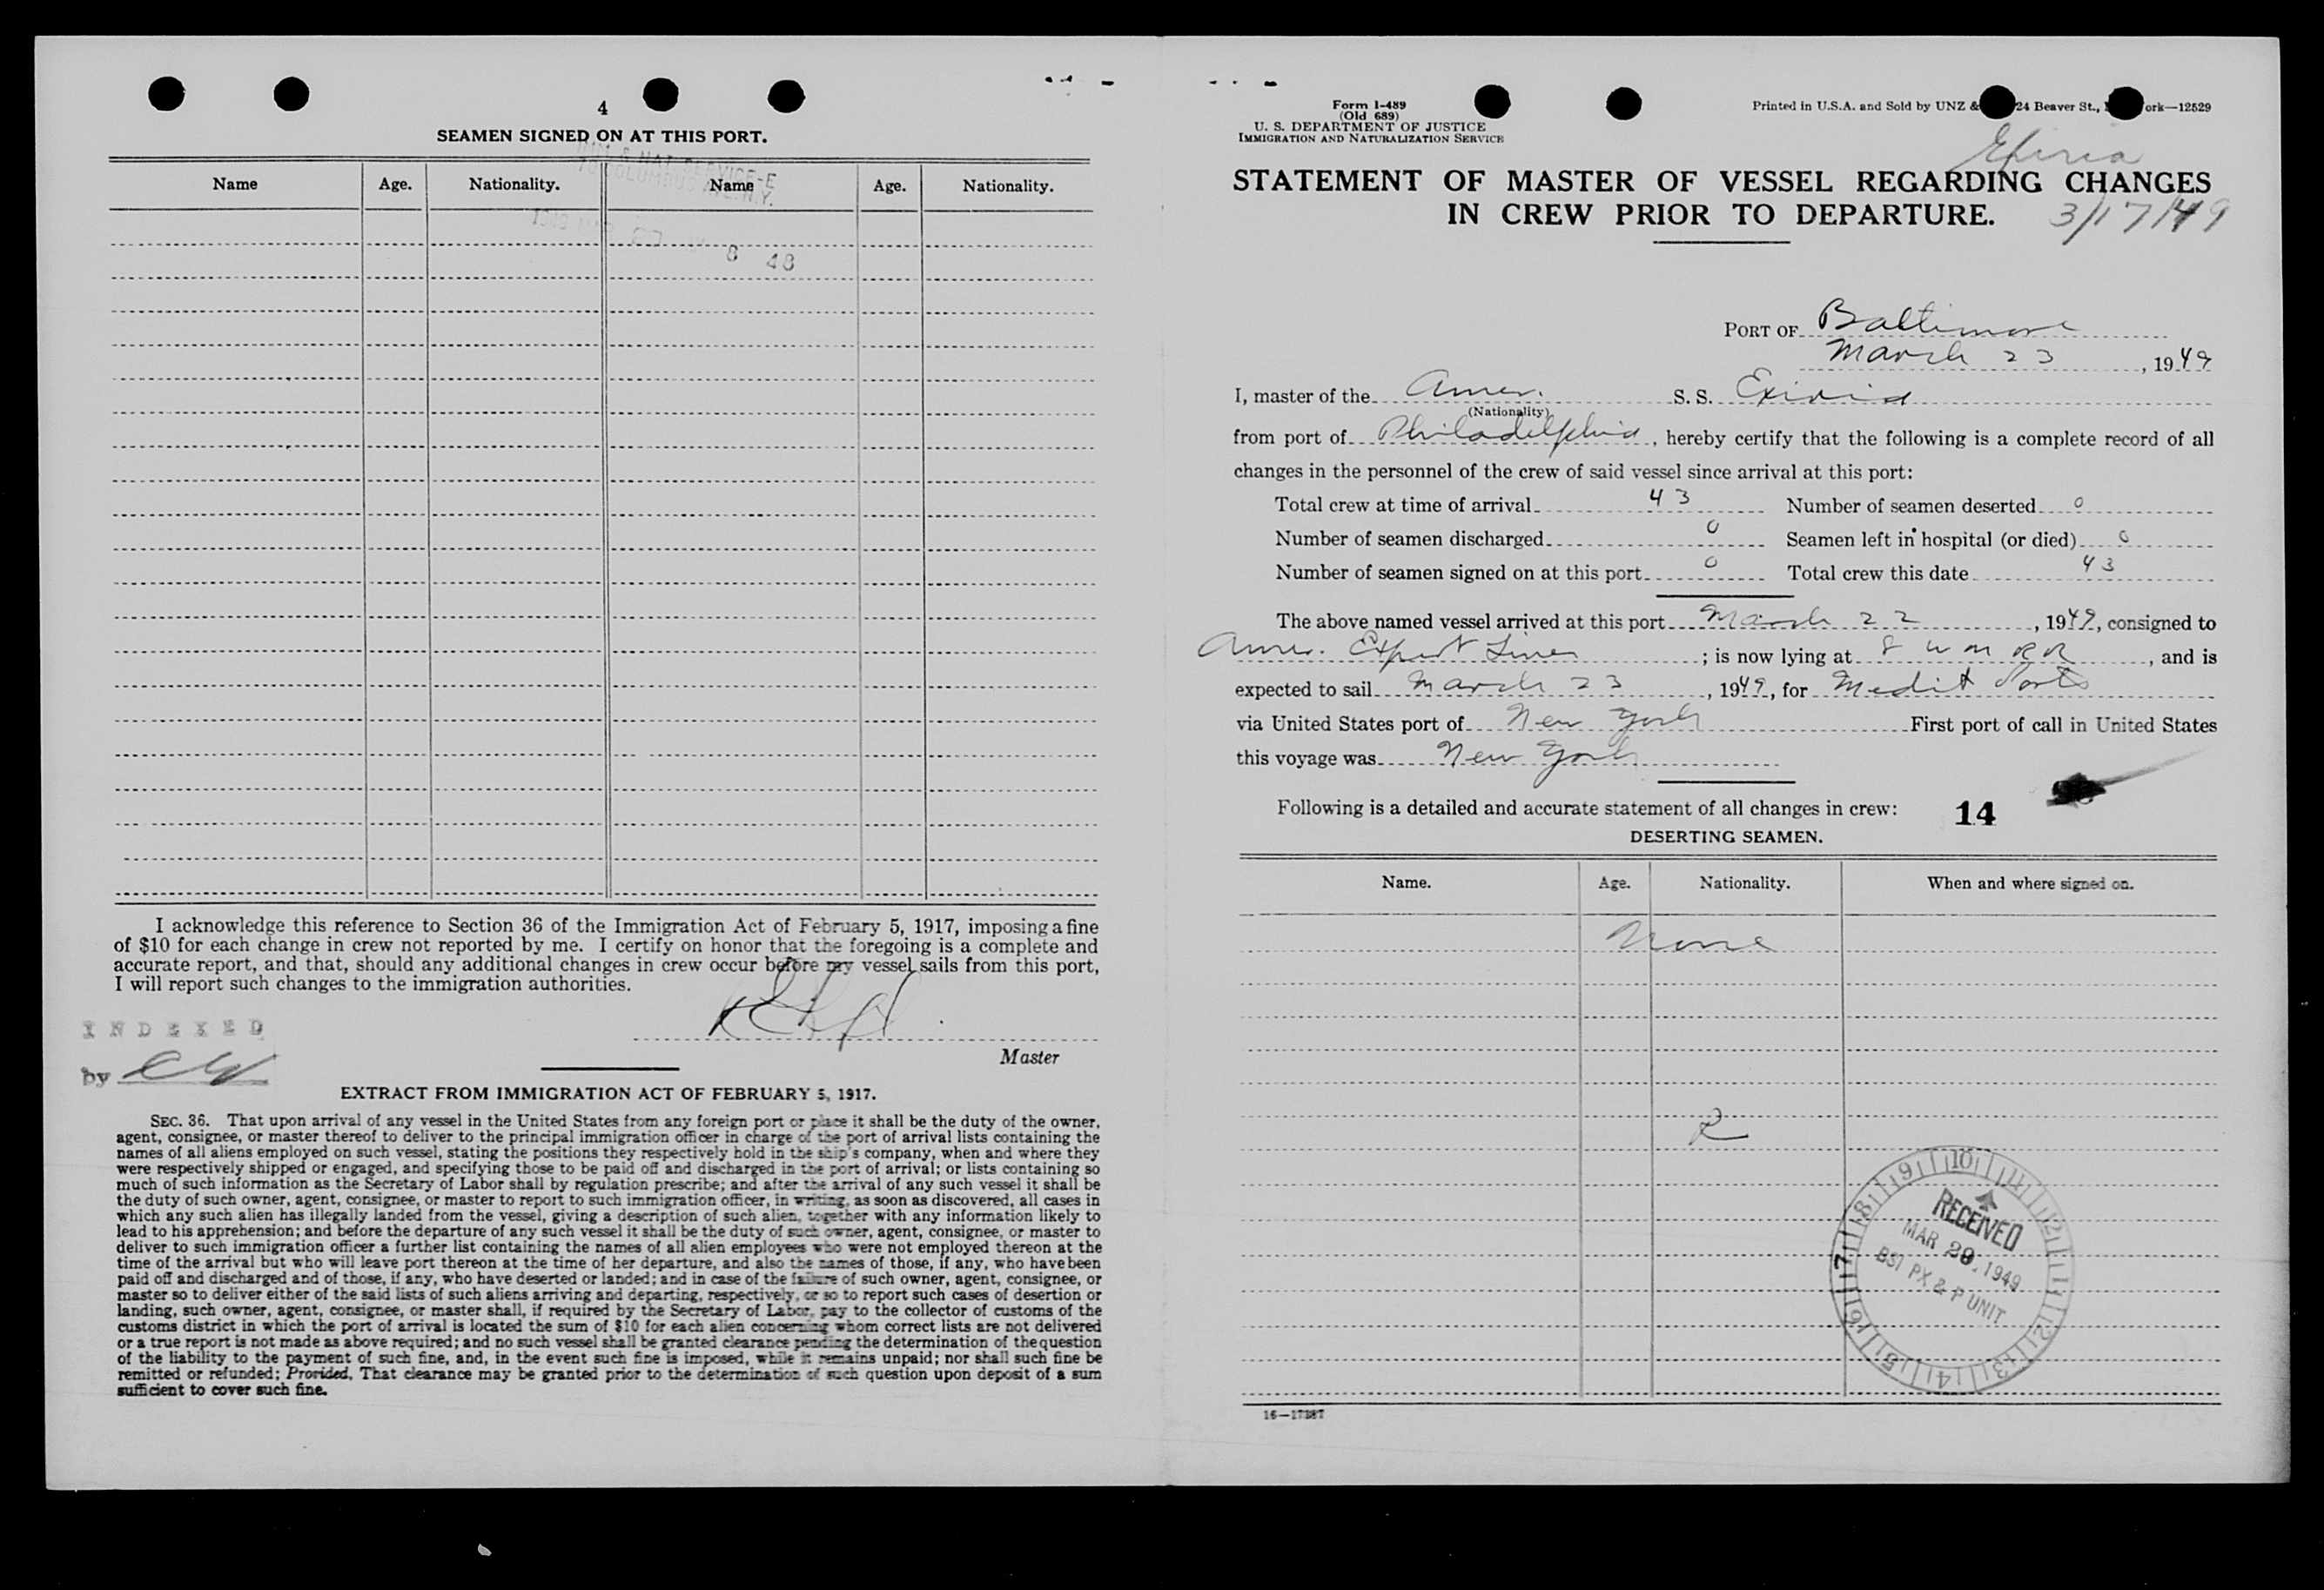 4
SEAMEN SIGNED ON AT THIS PORT.
Name Age. Nationality. Name Age. Nationality.
8 48
I acknowledge this reference to Section 36 of the Immigration Act of February 5, 1917, imposing a fine
of $10 for each change in crew not reported by me. I certify on honor that the foregoing is a complete and
accurate report, and that, should any additional changes in crew occur before my vessel sails from this port,
I will report such changes to the immigration authorities.
INDEXED
by
Master
EXTRACT FROM IMMIGRATION ACT OF FEBRUARY 5, 1917.
SEC. 36. That upon arrival of any vessel in the United States from any foreign port or place it shall be the duty of the owner,
agent, consignee, or master thereof to deliver to the principal immigration officer in charge of the port of arrival lists containing the
names of all aliens employed on such vessel, stating the positions they respectively hold in the ship's company, when and where they
were respectively shipped or engaged, and specifying those to be paid off and discharged in the port of arrival; or lists containing so
much of such information as the Secretary of Labor shall by regulation prescribe; and after the arrival of any such vessel it shall be
the duty of such owner, agent, consignee, or master to report to such immigration officer, in writing, as soon as discovered, all cases in
which any such alien has illegally landed from the vessel, giving a description of such alien, together with any information likely to
lead to his apprehension; and before the departure of any such vessel it shall be the duty of such owner, agent, consignee, or master to
deliver to such immigration officer a further list containing the names of all alien employees who were not employed thereon at the
time of the arrival but who will leave port thereon at the time of her departure, and also the names of those, if any, who have been
paid off and discharged and of those, if any, who have deserted or landed; and in case of the failure of such owner, agent, consignee, or
master so to deliver either of the said lists of such aliens arriving and departing, respectively, or so to report such cases of desertion or
landing, such owner, agent, consignee, or master shall, if required by the Secretary of Labor, pay to the collector of customs of the
customs district in which the port of arrival is located the sum of $10 for each alien concerning whom correct lists are not delivered
or a true report is not made as above required; and no such vessel shall be granted clearance pending the determination of the question
of the liability to the payment of such fine, and, in the event such fine is imposed, while it remains unpaid; nor shall such fine be
remitted or refunded; Provided, That clearance may be granted prior to the determination of such question upon deposit of a sum
sufficient to cover such fine.
Form I-489
(Old 689)
U. S. DEPARTMENT OF JUSTICE
IMMIGRATION AND NATURALIZATION SERVICE
Printed in U.S.A. and Sold by UNZ & 24 Beaver St., ork—12529
STATEMENT OF MASTER OF VESSEL REGARDING CHANGES
IN CREW PRIOR TO DEPARTURE.
3/17/49
PORT OF Baltimore
March 23, 1949
I, master of the Amer. S. S. Exiria
(Nationality)
from port of Philadelphia, hereby certify that the following is a complete record of all
changes in the personnel of the crew of said vessel since arrival at this port:
Total crew at time of arrival 43 Number of seamen deserted 0
Number of seamen discharged 0 Seamen left in hospital (or died) 0
Number of seamen signed on at this port 0 Total crew this date 43
The above named vessel arrived at this port March 22, 1949, consigned to
Amer. Export Lines; is now lying at 8 W M RR, and is
expected to sail March 23, 1949, for Medit Ports
via United States port of New York First port of call in United States
this voyage was New York
Following is a detailed and accurate statement of all changes in crew: 14
DESERTING SEAMEN.
Name. Age. Nationality. When and where signed on.
None
R
RECEIVED
MAR 29 1949
BSI PX & P UNIT
16—17387